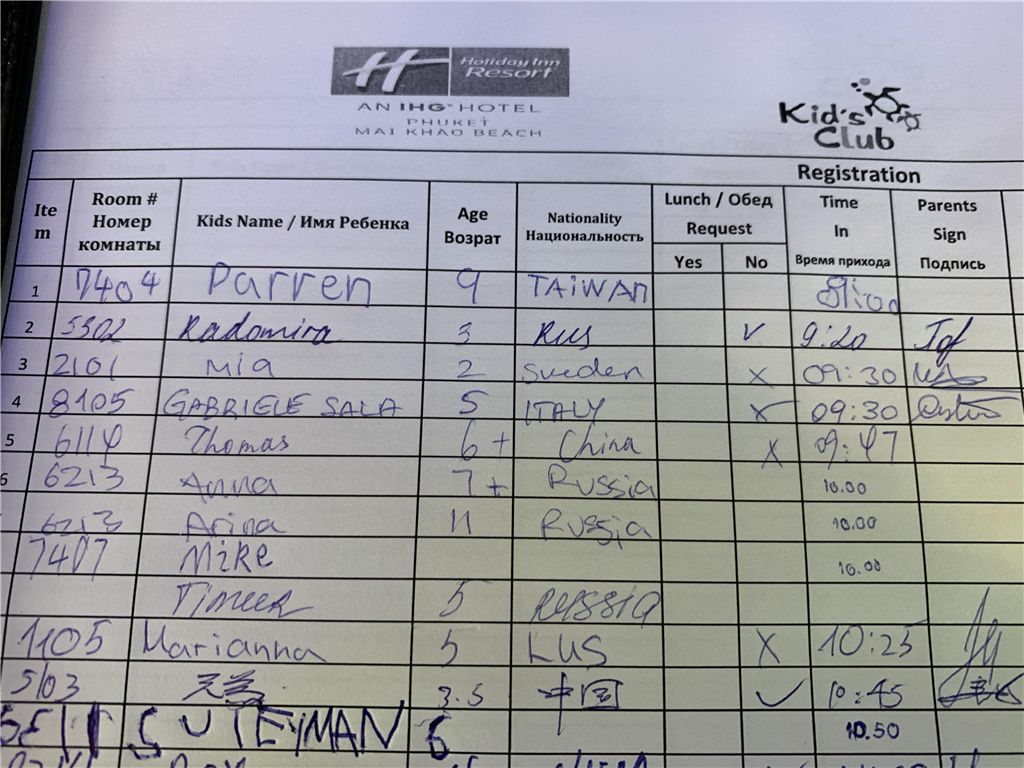 Holiday Inn
Resort
AN IHG® HOTEL
PHUKET
MAI KHAO BEACH
Kid's
Club
Registration
Item Room # Номер комнаты Kids Name / Имя Ребенка Age Возрат Nationality Национальность Lunch / Обед Request Yes No Time In Время прихода Parents Sign Подпись
1 7404 Darren 9 TAIWAN
2 5302 Radomira 3 RUS V 9:20
3 2101 Mia 2 Sweden X 09:30
4 8105 GABRIELE SALA 5 ITALY X 09:30
5 6114 Thomas 6+ China X 09:47
6 6213 Anna 7+ Russia 10.00
6213 Arina 11 Russia 10.00
7407 Mike 10.00
Timur 5 RUSSIA
1105 Marianna 5 RUS X 10:25
5103 3.5 中国 ✓ 10:45
SULEYMAN 6 10.50